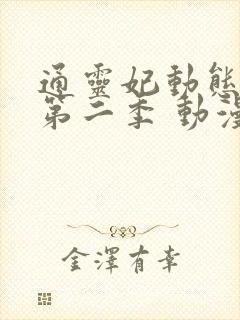 通靈妃動態
第二季 動漫
金澤有幸